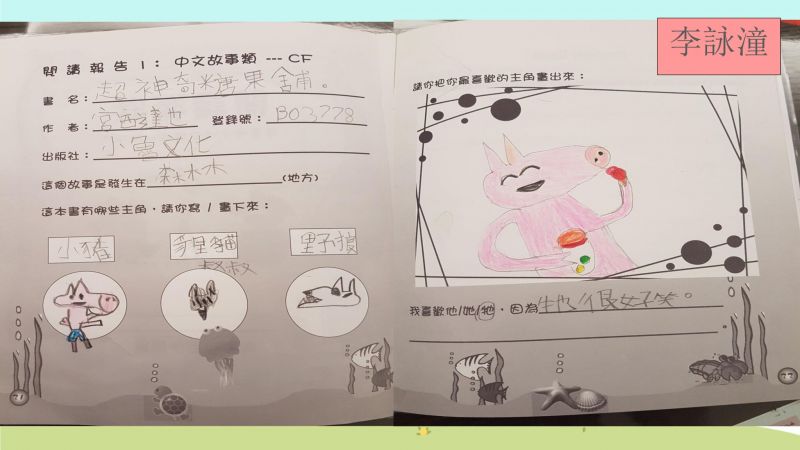 李詠潼
閱讀報告1：中文故事類 --- CF
書 名：超神奇糖果舖。
作 者：宮西達也 登錄號：B03778
出版社：小魯文化
這個故事是發生在 森林 (地方)
這本書有哪些主角，請你寫 / 畫下來：
小豬 狸貓 野狼
叔叔
21
請你把你最喜歡的主角畫出來：
我喜歡他/她/牠，因為牠很好笑。
22